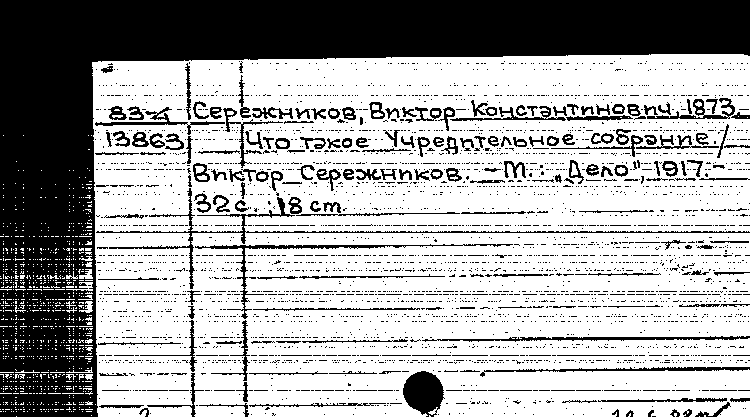 83-4 Сережников, Виктор Константинович, 1873.
13863 Что такое Учредительное собрание /
Виктор Сережников. – М. : „Дело", 1917. –
32 с. ; 18 cm.